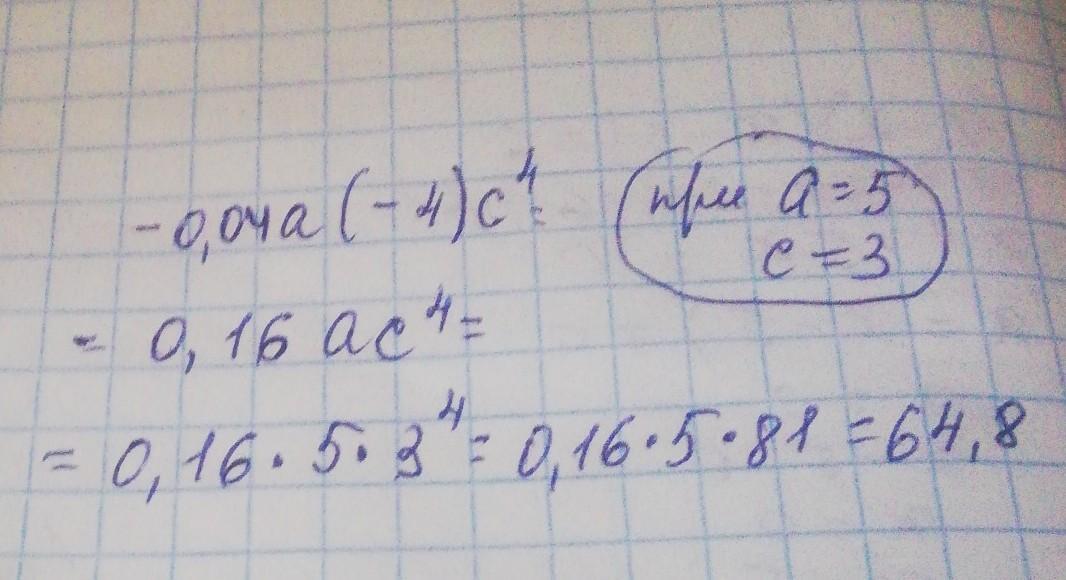 -0,04a(-4)c⁴= при a=5
c=3
= 0,16 ac⁴=
= 0,16·5·3⁴= 0,16·5·81=64,8